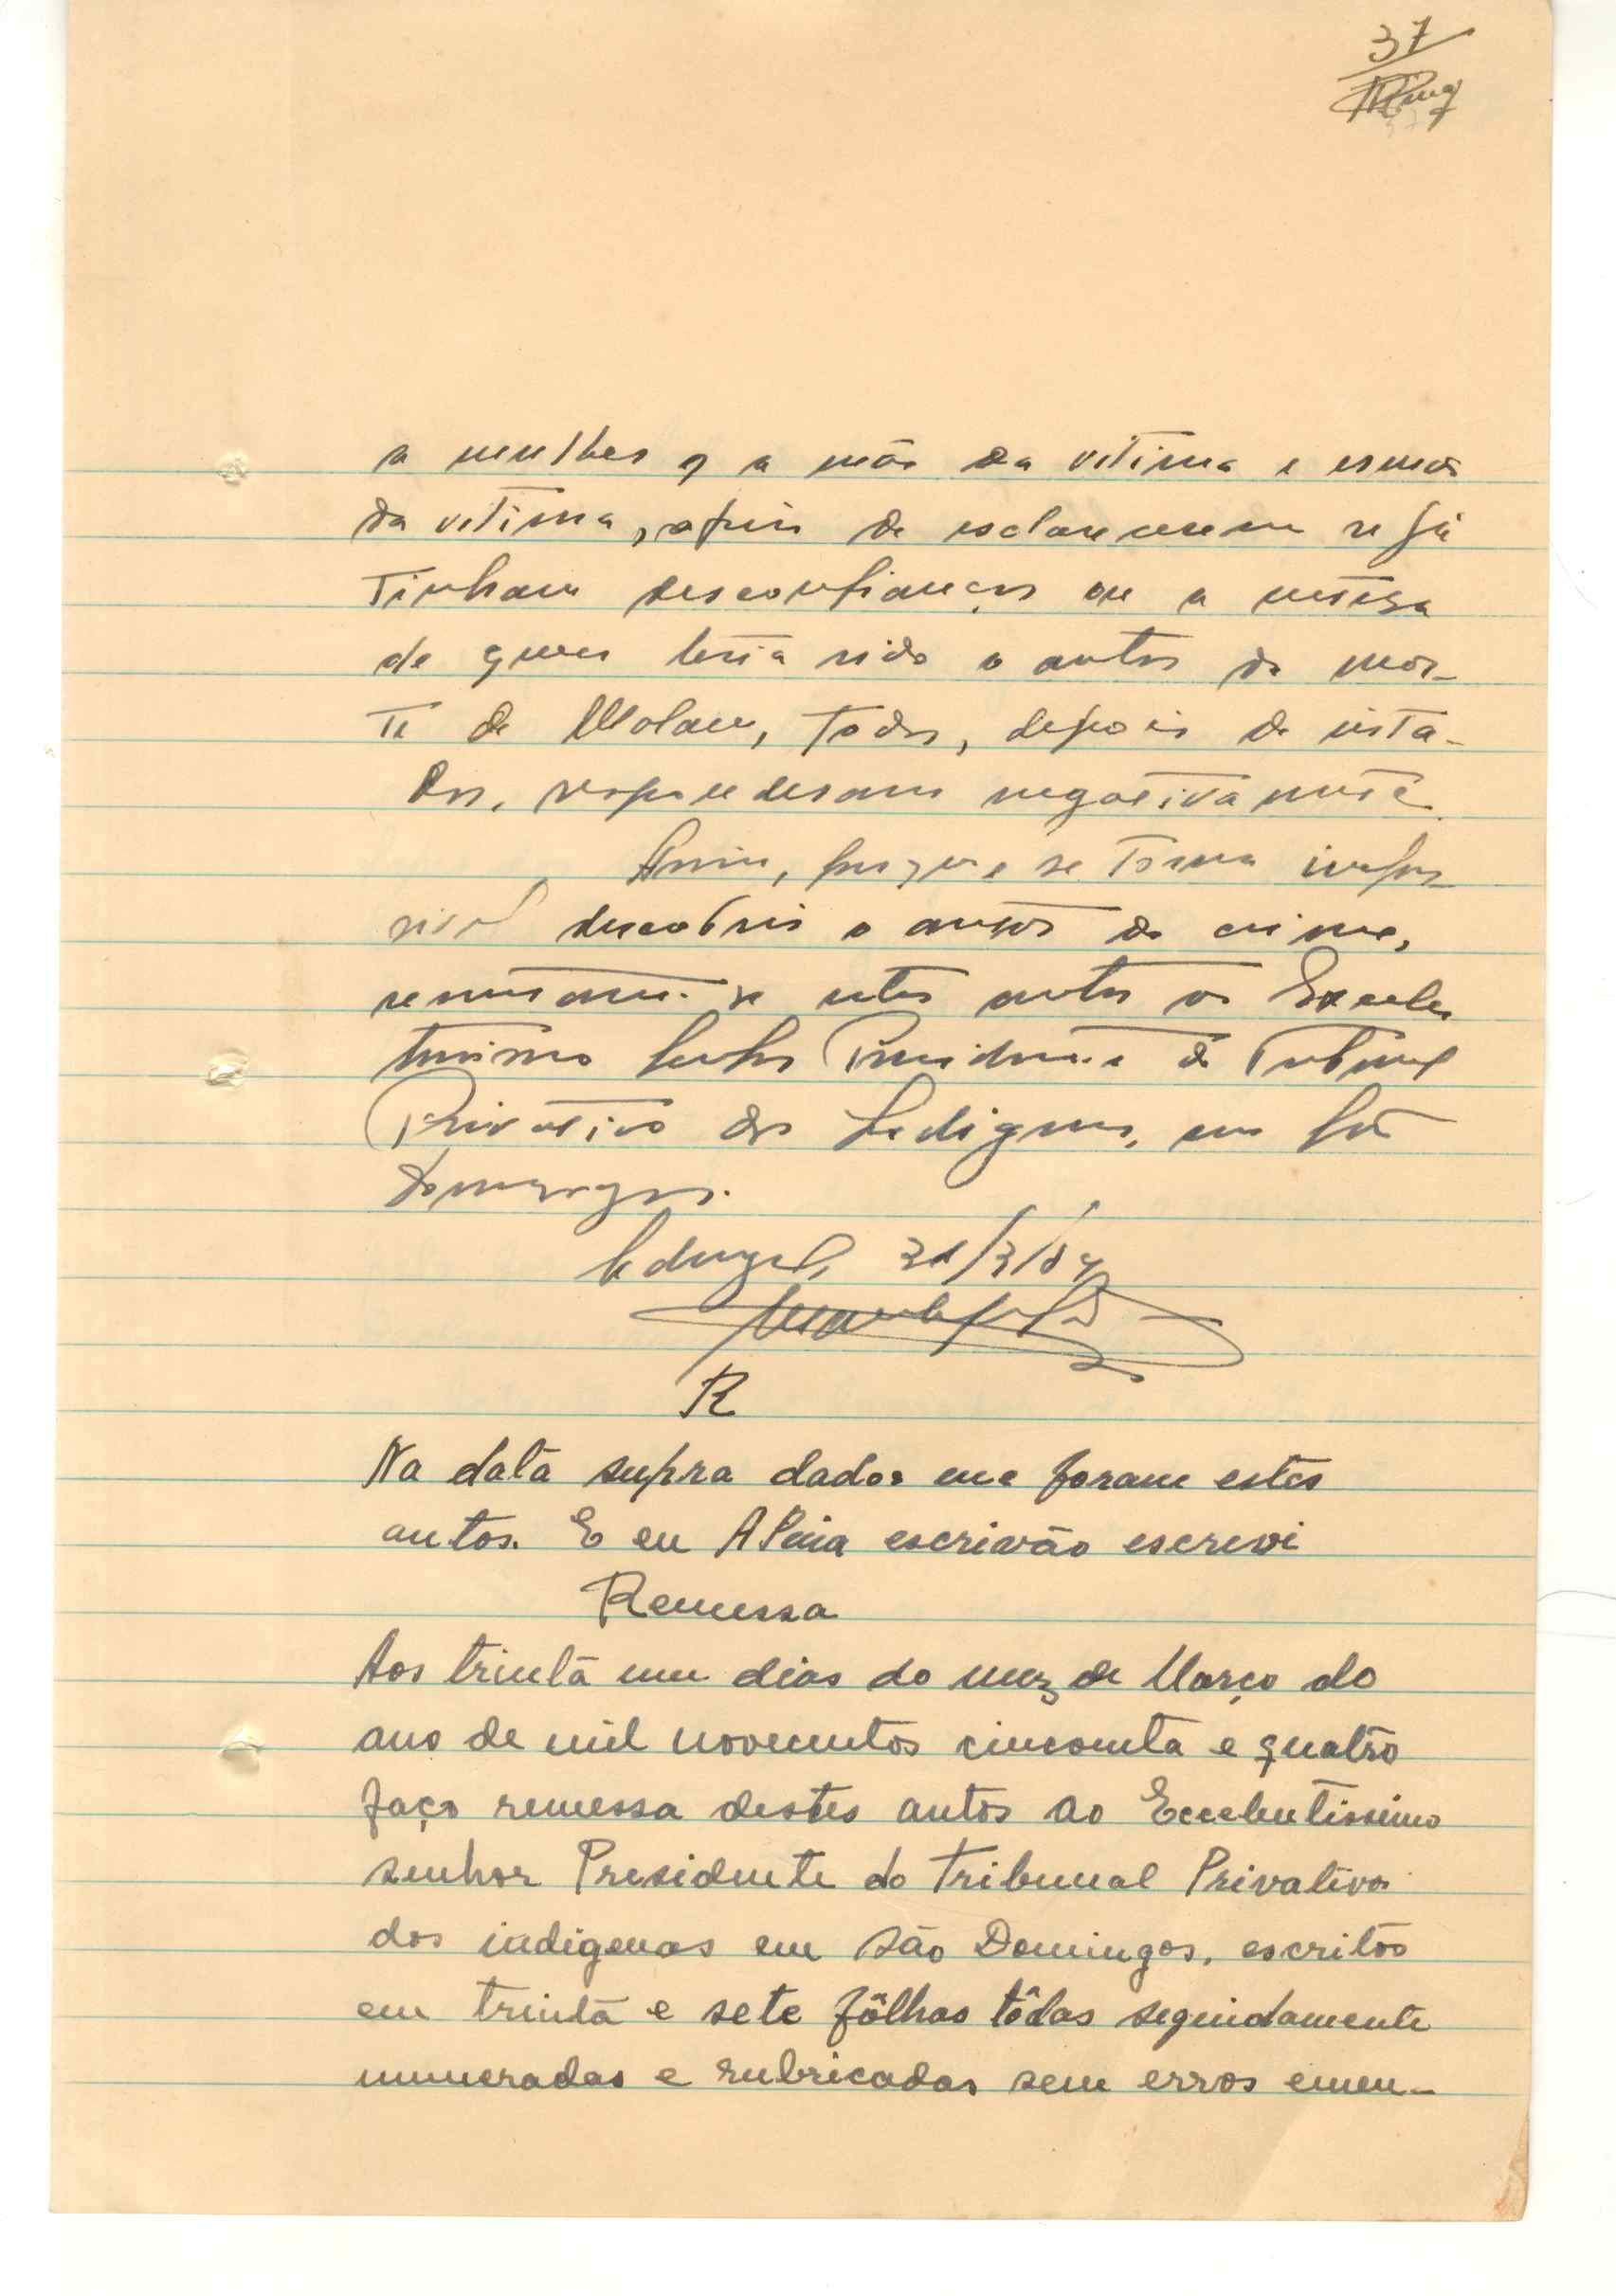 37
a mulher, a mãe da vitima e irmãos
da vitima, afim de esclarecerem se já
tinham desconfianças ou a certeza
de quem teria sido o autor da mor-
te de Molau, todos, depois de insta-
dos, responderam negativamente.
Assim, porque se torna impos
sivel descobrir o autor do crime,
remetam-se estes autos ao Excelen
tissimo Senhor Presidente do Tribunal
Privativo dos Indigenas, em São
Domingos.
31/3/54
R
Na data supra dados me foram estes
autos. E eu escrivão escrevi
Remessa
Aos trinta um dias do mez de Março do
ano de mil novecentos cincoenta e quatro
faço remessa destes autos ao Excelentissimo
senhor Presidente do Tribunal Privativo
dos indigenas em São Domingos, escritos
em trinta e sete fôlhas tôdas seguidamente
numeradas e rubricadas sem erros emen-